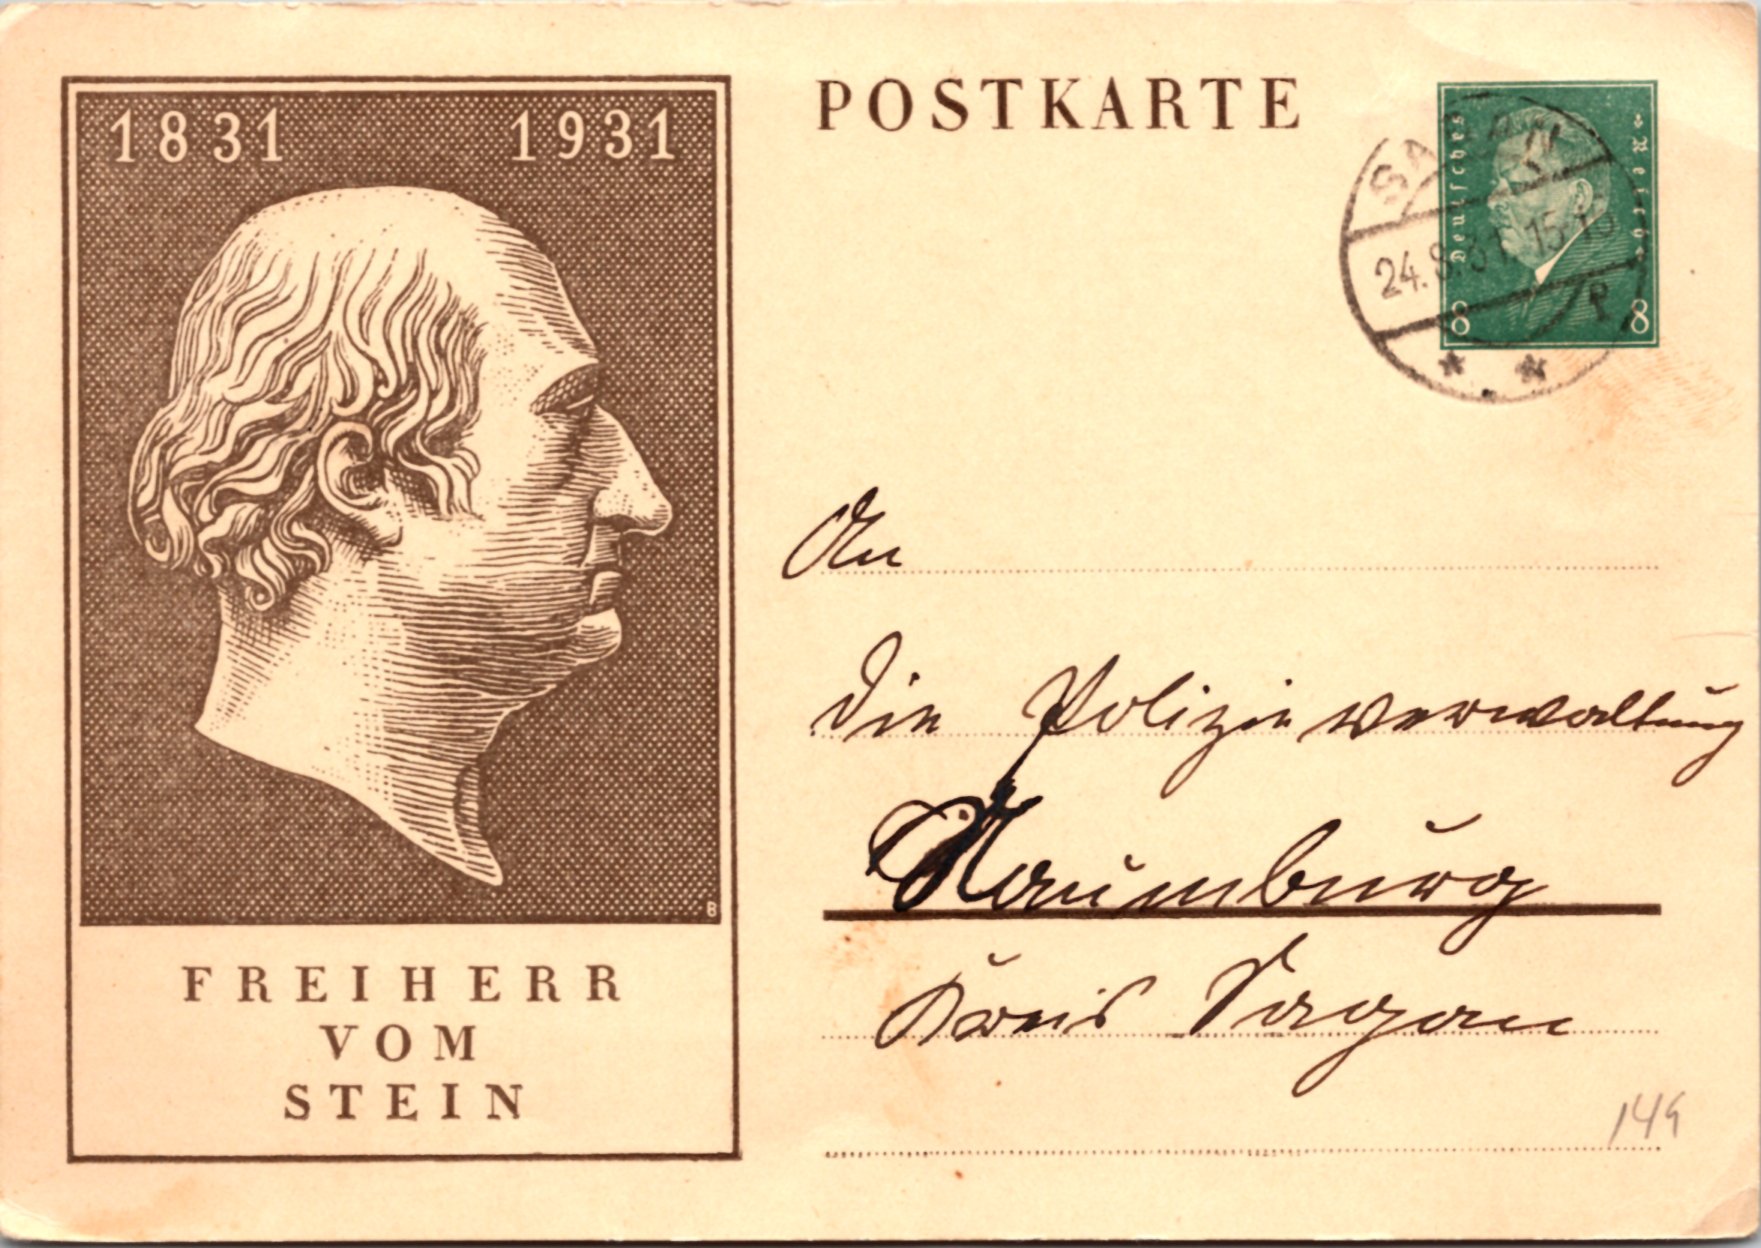 1831 1931
FREIHERR
VOM
STEIN
B
POSTKARTE
Deutsches Reich
8 8
SAGAN
24.8.31. 15-16
An
die Polizeiverwaltung
Naumburg
Kreis Sagan
149